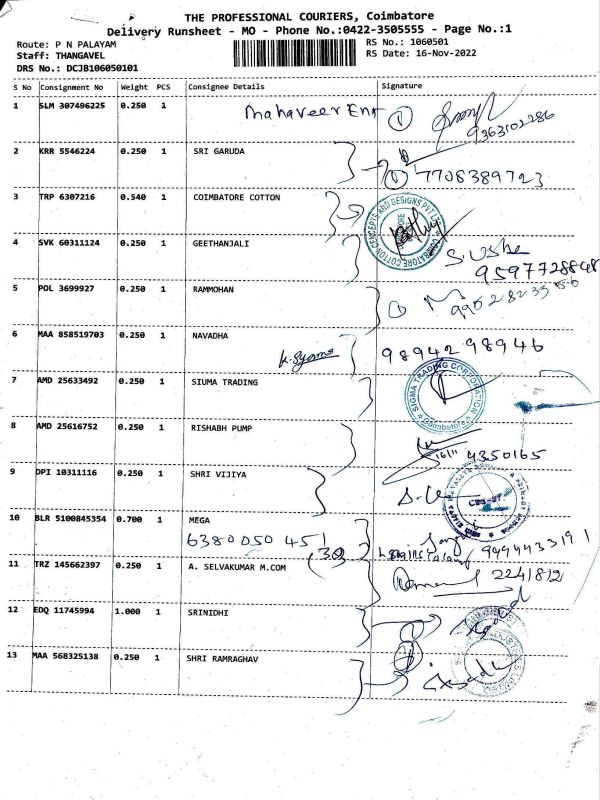 THE PROFESSIONAL COURIERS, Coimbatore
Delivery Runsheet - MO - Phone No.:0422-3505555 - Page No.:1
Route: P N PALAYAM
Staff: THANGAVEL
DRS No.: DCJB106050101
RS No.: 1060501
RS Date: 16-Nov-2022
S No Consignment No Weight PCS Consignee Details Signature
1 SLM 307496225 0.250 1 Mahaveer Ent 1
9363102286
2 KRR 5546224 0.250 1 SRI GARUDA
1 7708389723
3 TRP 6307216 0.540 1 COIMBATORE COTTON
COIMBATORE COTTON CONCEPTS AND DESIGNS PVT LTD
4 SVK 60311124 0.250 1 GEETHANJALI
S. Usha
9597728848
5 POL 3699927 0.250 1 RAMMOHAN
6 MAA 858519703 0.250 1 NAVADHA
98942 98946
7 AMD 25633492 0.250 1 SIUMA TRADING
SIGMA TRADING CORPORATION
Coimbatore
8 AMD 25616752 0.250 1 RISHABH PUMP
16/11 4350165
9 DPI 10311116 0.250 1 SHRI VIJIYA
10 BLR 5100845354 0.700 1 MEGA
6380050451
9444433191
11 TRZ 145662397 0.250 1 A. SELVAKUMAR M.COM
2241812
12 EDQ 11745994 1.000 1 SRINIDHI
13 MAA 568325138 0.250 1 SHRI RAMRAGHAV